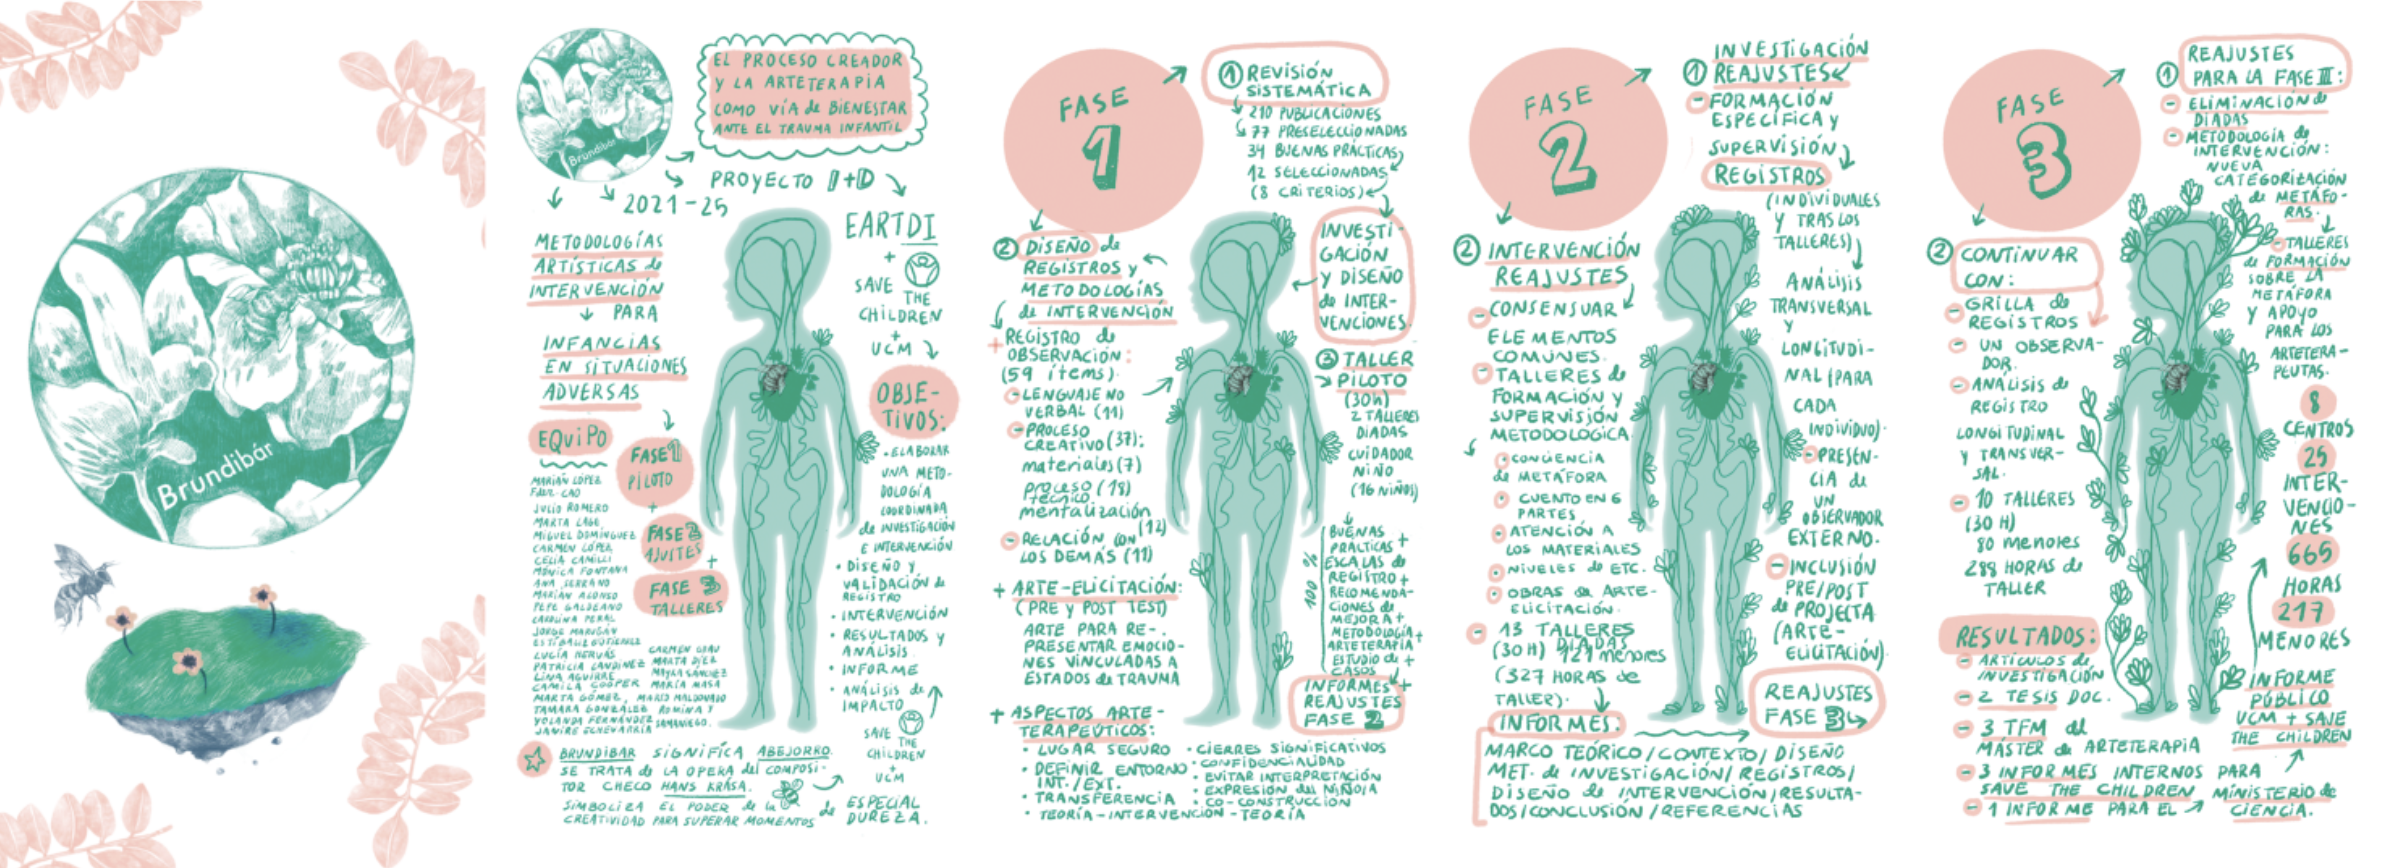 Brundibár
Brundibár
EL PROCESO CREADOR
Y LA ARTETERAPIA
COMO VÍA de BIENESTAR
ANTE EL TRAUMA INFANTIL
PROYECTO I+D
2021-25
METODOLOGÍAS
ARTÍSTICAS de
INTERVENCIÓN
PARA
INFANCIAS
EN SITUACIONES
ADVERSAS
EQUIPO
MARIÁN LÓPEZ
FDEZ-CAO
JULIO ROMERO
MARTA LAGE
MIGUEL DOMÍNGUEZ
CARMEN LÓPEZ
CELIA CAMILLI
MÓNICA FONTANA
ANA SERRANO
MARIÁN ALONSO
PEPE GALDEANO
CAROLINA PERAL
JORGE MARUGÁN
ESTÍBALIZ GUTIÉRREZ
LUCÍA HERVÁS
PATRICIA LANDÍNEZ
LINA AGUIRRE
CAMILA COOPER
MARTA GÓMEZ,
TAMARA GONZÁLEZ
YOLANDA FERNÁNDEZ
JANIRE ECHEVARRÍA
CARMEN GRAU
MARTA DÍEZ
MAYRA SÁNCHEZ
MARÍA MASA
MARIO MALDONADO
ROMINA Y
SAMANIEGO.
FASE 1
PILOTO
+
FASE 2
AJUSTES
+
FASE 3
TALLERES
EARTDI
+
SAVE
THE
CHILDREN
+
UCM
OBJE-
TIVOS:
• ELABORAR
UNA METO-
DOLOGÍA
COORDINADA
de INVESTIGACIÓN
E INTERVENCIÓN
• DISEÑO Y
VALIDACIÓN de
REGISTRO
• INTERVENCIÓN
• RESULTADOS Y
ANÁLISIS
• INFORME
• ANÁLISIS de
IMPACTO
SAVE THE
CHILDREN
+
UCM
BRUNDIBAR SIGNIFICA ABEJORRO.
SE TRATA de LA OPERA del COMPOSI-
TOR CHECO HANS KRÁSA.
SIMBOLIZA EL PODER de la
CREATIVIDAD PARA SUPERAR MOMENTOS de ESPECIAL
DUREZA.
FASE
1
① REVISIÓN
SISTEMÁTICA
210 PUBLICACIONES
77 PRESELECCIONADAS
34 BUENAS PRÁCTICAS
12 SELECCIONADAS
(8 CRITERIOS)
INVESTI-
GACIÓN
Y DISEÑO
de INTER-
VENCIONES.
② DISEÑO de
REGISTROS Y
METODOLOGÍAS
de INTERVENCIÓN
+ REGISTRO de
OBSERVACIÓN:
(59 ítems)
- LENGUAJE NO
VERBAL (11)
- PROCESO
CREATIVO (37):
materiales (7)
proceso (18)
técnico
mentalización
(12)
- RELACIÓN CON
LOS DEMÁS (11)
+ ARTE-ELICITACIÓN:
(PRE Y POST TEST)
ARTE PARA RE-
PRESENTAR EMOCIO-
NES VINCULADAS A
ESTADOS de TRAUMA
+ ASPECTOS ARTE-
TERAPEÚTICOS:
• LUGAR SEGURO
• DEFINIR ENTORNO
INT./EXT.
• TRANSFERENCIA
• TEORÍA-INTERVENCIÓN-TEORÍA
• CIERRES SIGNIFICATIVOS
• CONFIDENCIALIDAD
• EVITAR INTERPRETACIÓN
• EXPRESIÓN del NIÑO/A
• CO-CONSTRUCCIÓN
③ TALLER
PILOTO
(30h)
2 TALLERES
DIADAS
CUIDADOR
NIÑO
(16 NIÑOS)
100 %
BUENAS
PRÁCTICAS +
ESCALAS de
REGISTRO +
RECOMENDA-
CIONES de
MEJORA +
METODOLOGÍA +
ARTETERAPIA
ESTUDIO de +
CASOS
INFORMES +
REAJUSTES
FASE 2
FASE
2
① INVESTIGACIÓN
REAJUSTES
- FORMACIÓN
ESPECÍFICA Y
SUPERVISIÓN
REGISTROS
(INDIVIDUALES
Y TRAS LOS
TALLERES)
ANÁLISIS
TRANSVERSAL
Y
LONGITUDI-
NAL (PARA
CADA
INDIVIDUO)
- PRESEN-
CIA de
UN
OBSERVADOR
EXTERNO.
- INCLUSIÓN
PRE/POST
de PROJECTA
(ARTE-
ELICITACIÓN)
REAJUSTES
FASE 3
② INTERVENCIÓN
REAJUSTES
- CONSENSUAR
ELEMENTOS
COMUNES.
- TALLERES de
FORMACIÓN Y
SUPERVISIÓN
METODOLÓGICA
• CONCIENCIA
de METÁFORA
• CUENTO EN 6
PARTES
• ATENCIÓN A
LOS MATERIALES
• NIVELES de ETC.
• OBRAS de ARTE-
ELICITACIÓN.
- 13 TALLERES
(30H) DIADAS
121 menores
(327 HORAS de
TALLER).
INFORMES:
MARCO TEÓRICO/CONTEXTO/DISEÑO
MET. de INVESTIGACIÓN/REGISTROS/
DISEÑO de INTERVENCIÓN/RESULTA-
DOS/CONCLUSIÓN/REFERENCIAS
FASE
3
① REAJUSTES
PARA LA FASE III:
- ELIMINACIÓN de
DIADAS
- METODOLOGÍA de
INTERVENCIÓN:
NUEVA
CATEGORIZACIÓN
de METÁFO-
RAS.
- TALLERES
de FORMACIÓN
SOBRE LA
METÁFORA
Y APOYO
PARA LOS
ARTETERA-
PEUTAS.
8
CENTROS
25
INTER-
VENCIO-
NES
665
HORAS
217
MENORES
INFORME
PÚBLICO
UCM + SAVE
THE CHILDREN
② CONTINUAR
CON:
- GRILLA de
REGISTROS
- UN OBSERVA-
DOR.
- ANÁLISIS de
REGISTRO
LONGITUDINAL
Y TRANSVER-
SAL.
- 10 TALLERES
(30 H)
80 menores
288 HORAS de
TALLER
RESULTADOS:
- ARTÍCULOS de
INVESTIGACIÓN
- 2 TESIS DOC.
- 3 TFM del
MÁSTER de ARTETERAPIA
- 3 INFORMES INTERNOS PARA
SAVE THE CHILDREN
- 1 INFORME PARA EL MINISTERIO de
CIENCIA.